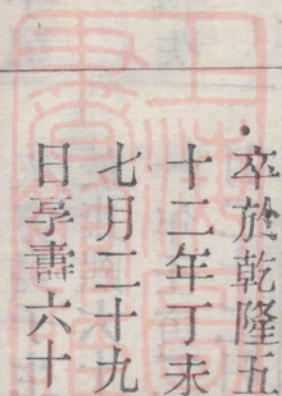 卒於乾隆五
十二年丁未
七月二十九
日享壽六十